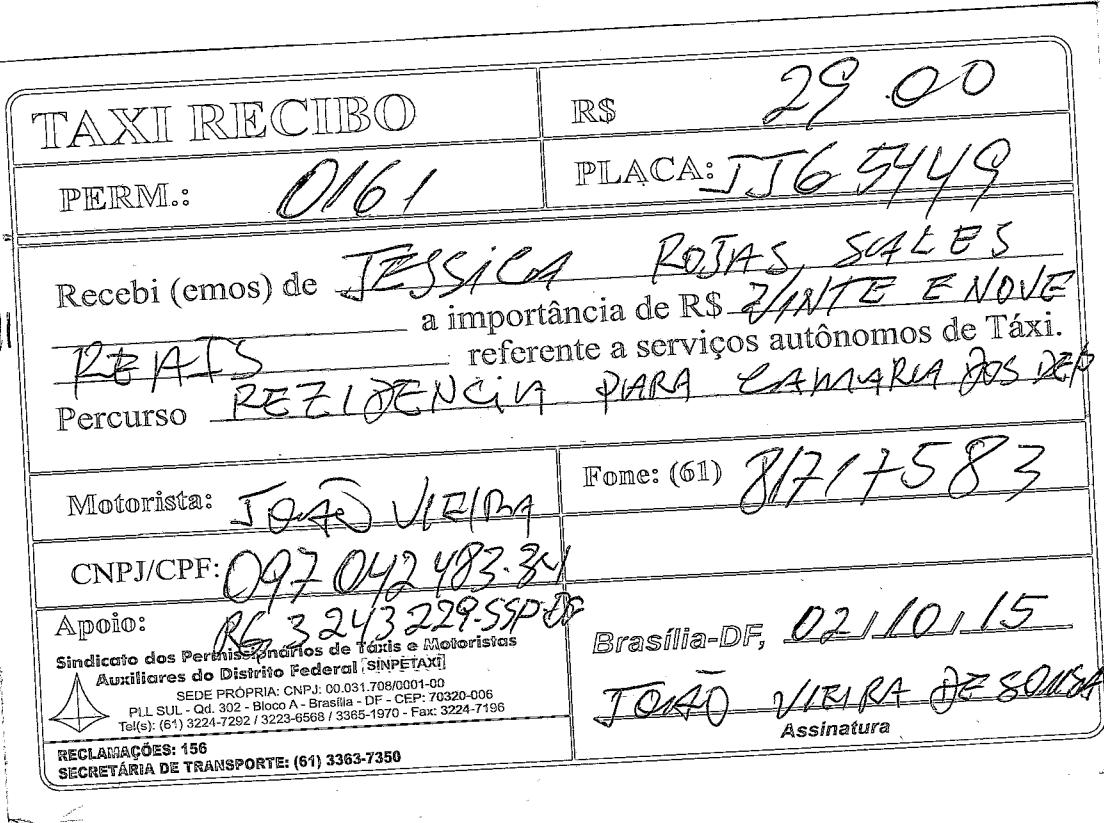 TAXI RECIBO
R$ 29.00
PERM.: 0161
PLACA: JJG 5449
Recebi (emos) de JESSICA ROJAS SALES
a importância de R$ VINTE E NOVE
REAIS referente a serviços autônomos de Táxi.
Percurso REZIDENCIA PARA CAMARA DOS DEP
Motorista: JOÃO VIEIRA
Fone: (61) 81717583
CNPJ/CPF: 097042483.34
Apoio: RG 3243229-SSP-DF
Sindicato dos Permissionários de Táxis e Motoristas
Auxiliares do Distrito Federal [SINPETAXI]
SEDE PRÓPRIA: CNPJ: 00.031.708/0001-00
PLL SUL - Qd. 302 - Bloco A - Brasília - DF - CEP: 70320-006
Tel(s): (61) 3224-7292 / 3223-6568 / 3365-1970 - Fax: 3224-7196
RECLAMAÇÕES: 156
SECRETÁRIA DE TRANSPORTE: (61) 3363-7350
Brasília-DF, 02/10/15
JOÃO VIEIRA DE SOUSA
Assinatura